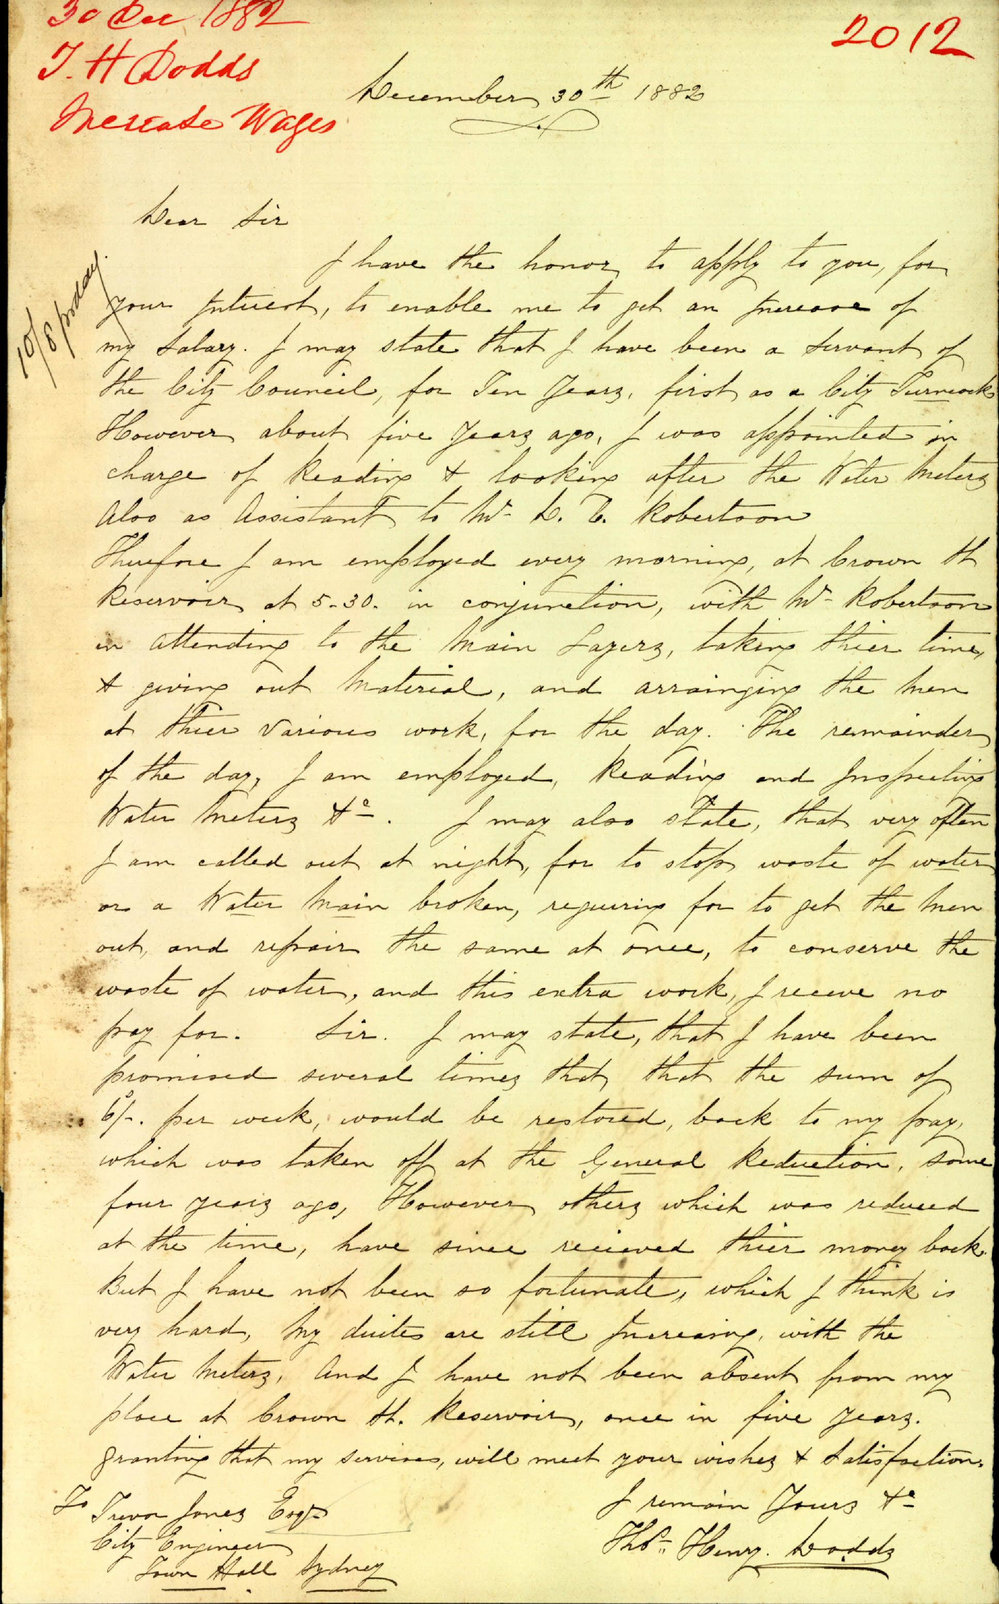 30 Dec 1882
2012
T. H Dodds
Increase Wages
December 30th 1882
Dear Sir
10/8 pr day.
I have the honor, to apply to you, for
your Interest, to enable me to get an Increase of
my Salary. I may state that I have been a Servant of
the City Council, for Ten Years, first as a City Turncock
However about five Years ago, I was appointed in
charge of Reading & looking after the Water Meters
Also as Assistant to Mr. D. T. Robertson
Therefore I am employed every morning, at Crown St
Reservoir at 5-30. in conjunction, with Mr. Robertson
in Attending to the Main Layers, taking thier time,
& giving out Material, and arrainging the Men
at thier various work, for the day. The remainder
of the day, I am employed, Reading and Inspecting
Water Meters &c. I may also state, that very often
I am called out at night, for to stop waste of water
or a Water Main broken, requiring for to get the Men
out, and repair the same at once, to conserve the
waste of water, and this extra work, I receve no
pay for. Sir. I may state, that I have been
promised several times that, that the sum of
6/-. per week, would be restored, back to my pay,
which was taken off at the General Reduction, some
four years ago, However others which was reduced
at the time, have since recieved thier money back.
But I have not been so fortunate, which I think is
very hard, My duites are still Increasing, with the
Water Meters, And I have not been absent from my
place at Crown St. Reservoir, once in five Years.
Granting that my services, will meet your wishes & Satisfaction.
I remain Yours &c
To Trevor Jones Esqr
City Engineer
Town Hall Sydney
Thos. Henry. Dodds